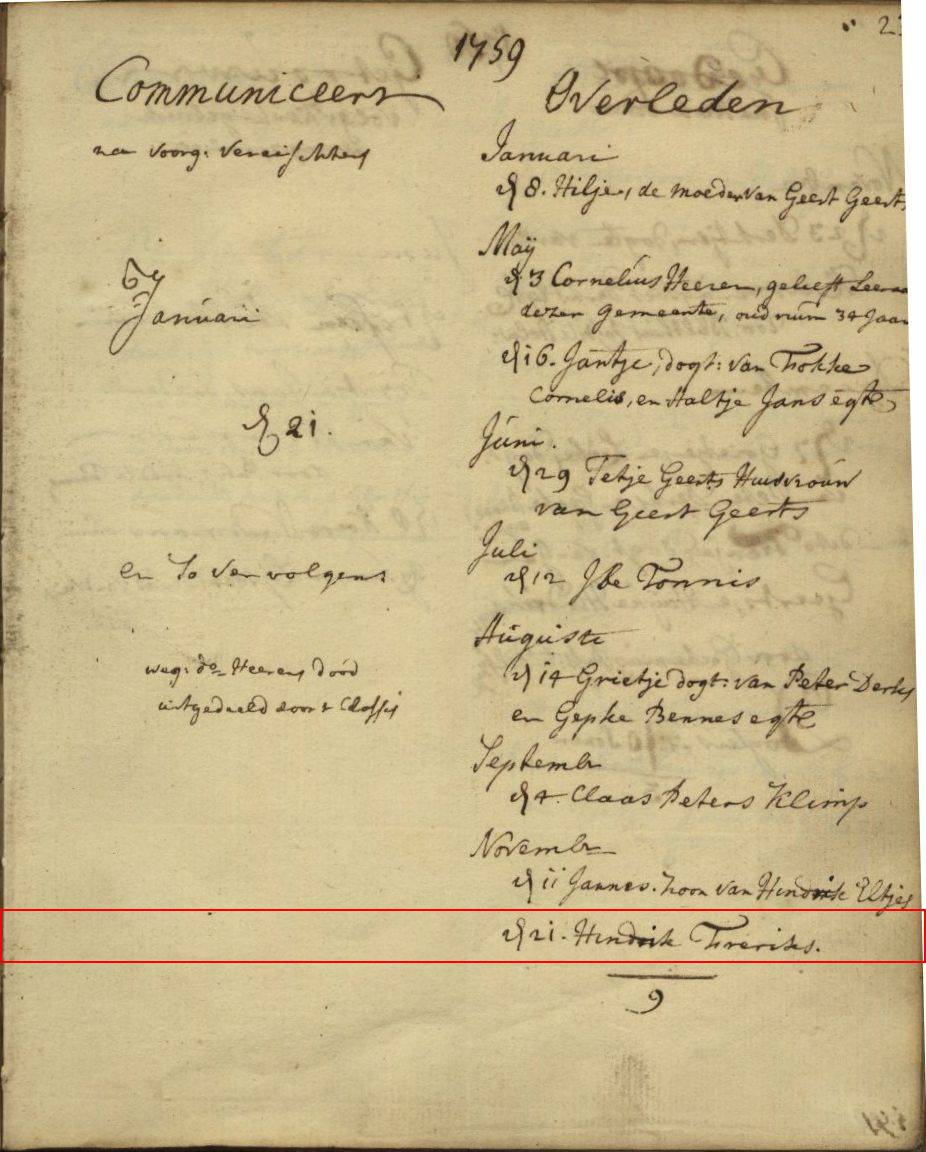 23
1759
Communiceert
na voorg: vereischtens
Januari
d 21.
en so vervolgens
weg: do Heerens dood
uitgedeeld door t Classis
Overleden
Januari
d 8. Hilje, de moeder van Geert Geerts
Maÿ
d 3 Cornelius Heeren, geliefft Leeraar
dezer gemeente, oud ruim 34 Jaar
d 16. Jantje, dogt: van Fokke
Cornelis, en Aaltje Jans egte
Juni.
d 29 Tetje Geerts Huisvrouw
van Geert Geerts
Juli
d 12 Tonnis
Auguste
d 14 Grietje dogt: van Peter Derks
en Gepke Bennes egte
Septembr
d 4. Claas Peters Klimp
Novembr
d 11 Jannes. zoon van Hendrik Eltjes
d 21. Hendrik Freriks.
9